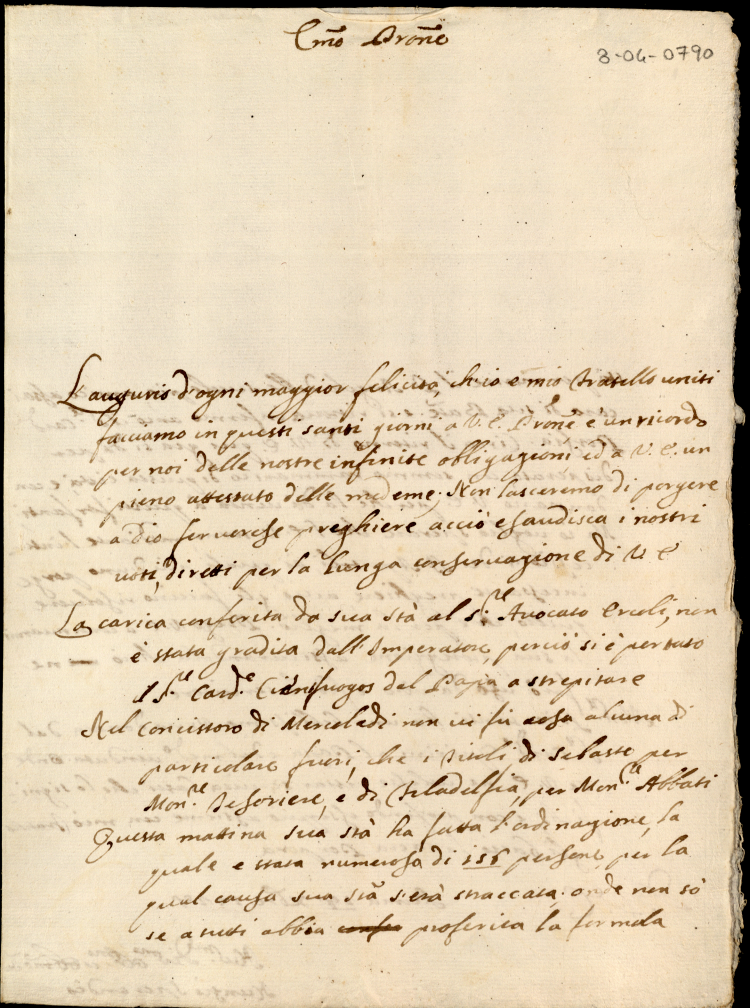 Emo Prone
8-04-0790
L'augurio d'ogni maggior felicità, ch'io e mio Fratello uniti
facciamo in questi santi giorni a V. E. Prone è un ricordo
per noi delle nostre infinite obligazioni, ed a V. E. un
pieno attestato delle medeme; Non lasceremo di porgere
a Dio fervorose preghiere acciò esaudisca i nostri
voti, diretti per la lunga conservazione di V E
La carica conferita da sua Stà al S.re Avocato Ercoli, non
è stata gradita dall'Imperatore, perciò si è portato
il S.re Card.e Cienfuogos dal Papa a strepitare
Nel Concistoro di Mercoledi non vi fù cosa alcuna di
particolare fuori, che i titoli, di Sebaste per
Mon.re Tesoriere, e di Filadelfia, per Mon.re Abbati
Questa mattina sua Stà ha fatta l'ordinazione, la
quale e stata numerosa di 156 persone, per la
qual causa sua Stà s'erà straccata, onde non sò
se a tutti abbia proferita la formola